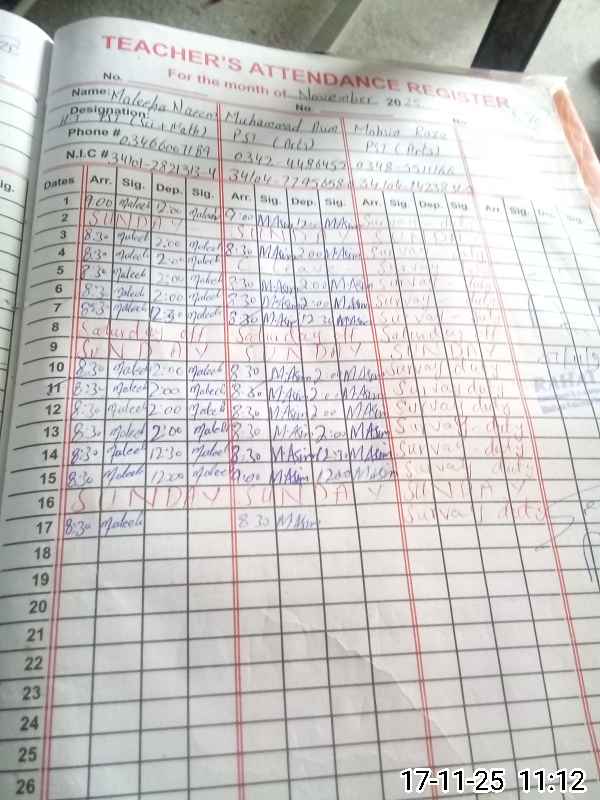 TEACHER'S ATTENDANCE REGISTER
No. For the month of November 2025
Name: Maleeha Naeem Muhammad Mohsin Raza
No. No.
Designation: (Sci+Math) PST (Arts) PST (Arts)
Phone # 03466067189 0342-4486457
N.I.C # 34101-2821313-4
Dates Arr. Sig. Dep. Sig. Arr. Sig. Dep. Sig. Arr. Sig. Dep. Sig. Arr Sig.
1 9:00 Maleeh 12:00 Maleeh 9:00 M.Asim 12:00 M.Asim Survay duty
2 SUNDAY SUNDAY SUNDAY
3 8:30 Maleeh 2:00 Maleeh 8:30 M.Asim 2:00 M.Asim Survay duty
4 8:30 Maleeh 2:00 Maleeh Survay
5 8:30 Maleeh 2:00 Maleeh 8:30 M.Asim 2:00 M.Asim Survay duty
6 8:30 Maleeh 2:00 Maleeh 8:30 M.Asim 2:00 M.Asim Survay duty
7 8:30 Maleeh 12:30 Maleeh 8:30 M.Asim 12:30 M.Asim Survay duty
8 Saturday off Saturday off Saturday off
9 SUNDAY SUNDAY SUNDAY
10 8:30 Maleeh 2:00 Maleeh 8:30 M.Asim 2:00 M.Asim Survay duty
11 8:30 Maleeh 2:00 Maleeh 8:30 M.Asim 2:00 M.Asim Survay duty
12 8:30 Maleeh 2:00 Maleeh 8:30 M.Asim 2:00 M.Asim Survay duty
13 8:30 Maleeh 2:00 Maleeh 8:30 M.Asim 2:00 M.Asim Survay duty
14 8:30 Maleeh 12:30 Maleeh 8:30 M.Asim 12:30 M.Asim Survay duty
15 8:30 Maleeh 12:00 Maleeh 9:00 M.Asim 12:00 M.Asim Survay duty
16 SUNDAY SUNDAY SUNDAY
17 8:30 Maleeh 8:30 M.Asim Survay duty
18
19
20
21
22
23
24
25
26
17-11-25 11:12